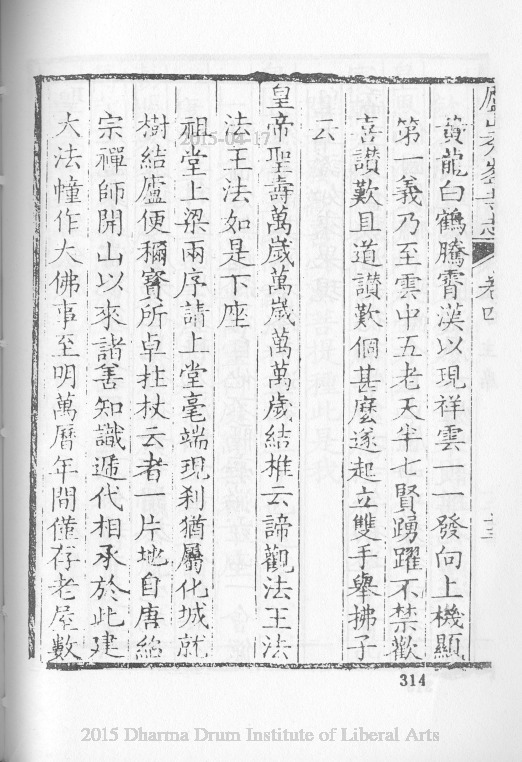 黃龍白鶴騰霄漢以現祥雲一一發向上機顯
第一義乃至雲中五老天半七賢踴躍不禁歡
喜讚歎且道讚歎個甚麼遂起立雙手舉拂子
云
皇帝聖壽萬歲萬歲萬萬歲結椎云諦觀法王法
法王法如是下座
祖堂上梁兩序請上堂毫端現剎猶屬化城就
樹結廬便稱寶所卓拄杖云者一片地自唐紹
宗禪師開山以來諸善知識遞代相承於此建
大法幢作大佛事至明萬曆年間僅存老屋數
卷四
314
2015-04-17
2015 Dharma Drum Institute of Liberal Arts